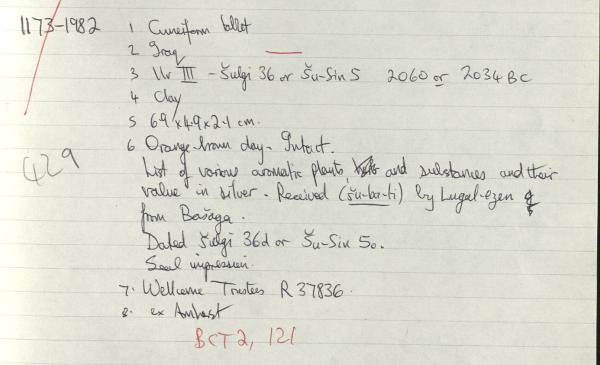 1173-1982
1 Cuneiform tablet
2 Iraq
3 Ur III - Šulgi 36 or Šu-Sin 5 2060 or 2034 BC
4 Clay
5 6.9 x 4.9 x 2.1 cm.
6 Orange-brown clay - Intact.
List of various aromatic plants, and substances and their
value in silver. Received (šu-ba-ti) by Lugal-ezen
from Bašaga.
Dated Šulgi 36d or Šu-Sin 5o.
Seal impression.
7. Wellcome Trustees R 37836.
8. ex Amherst
429
BCT 2, 121